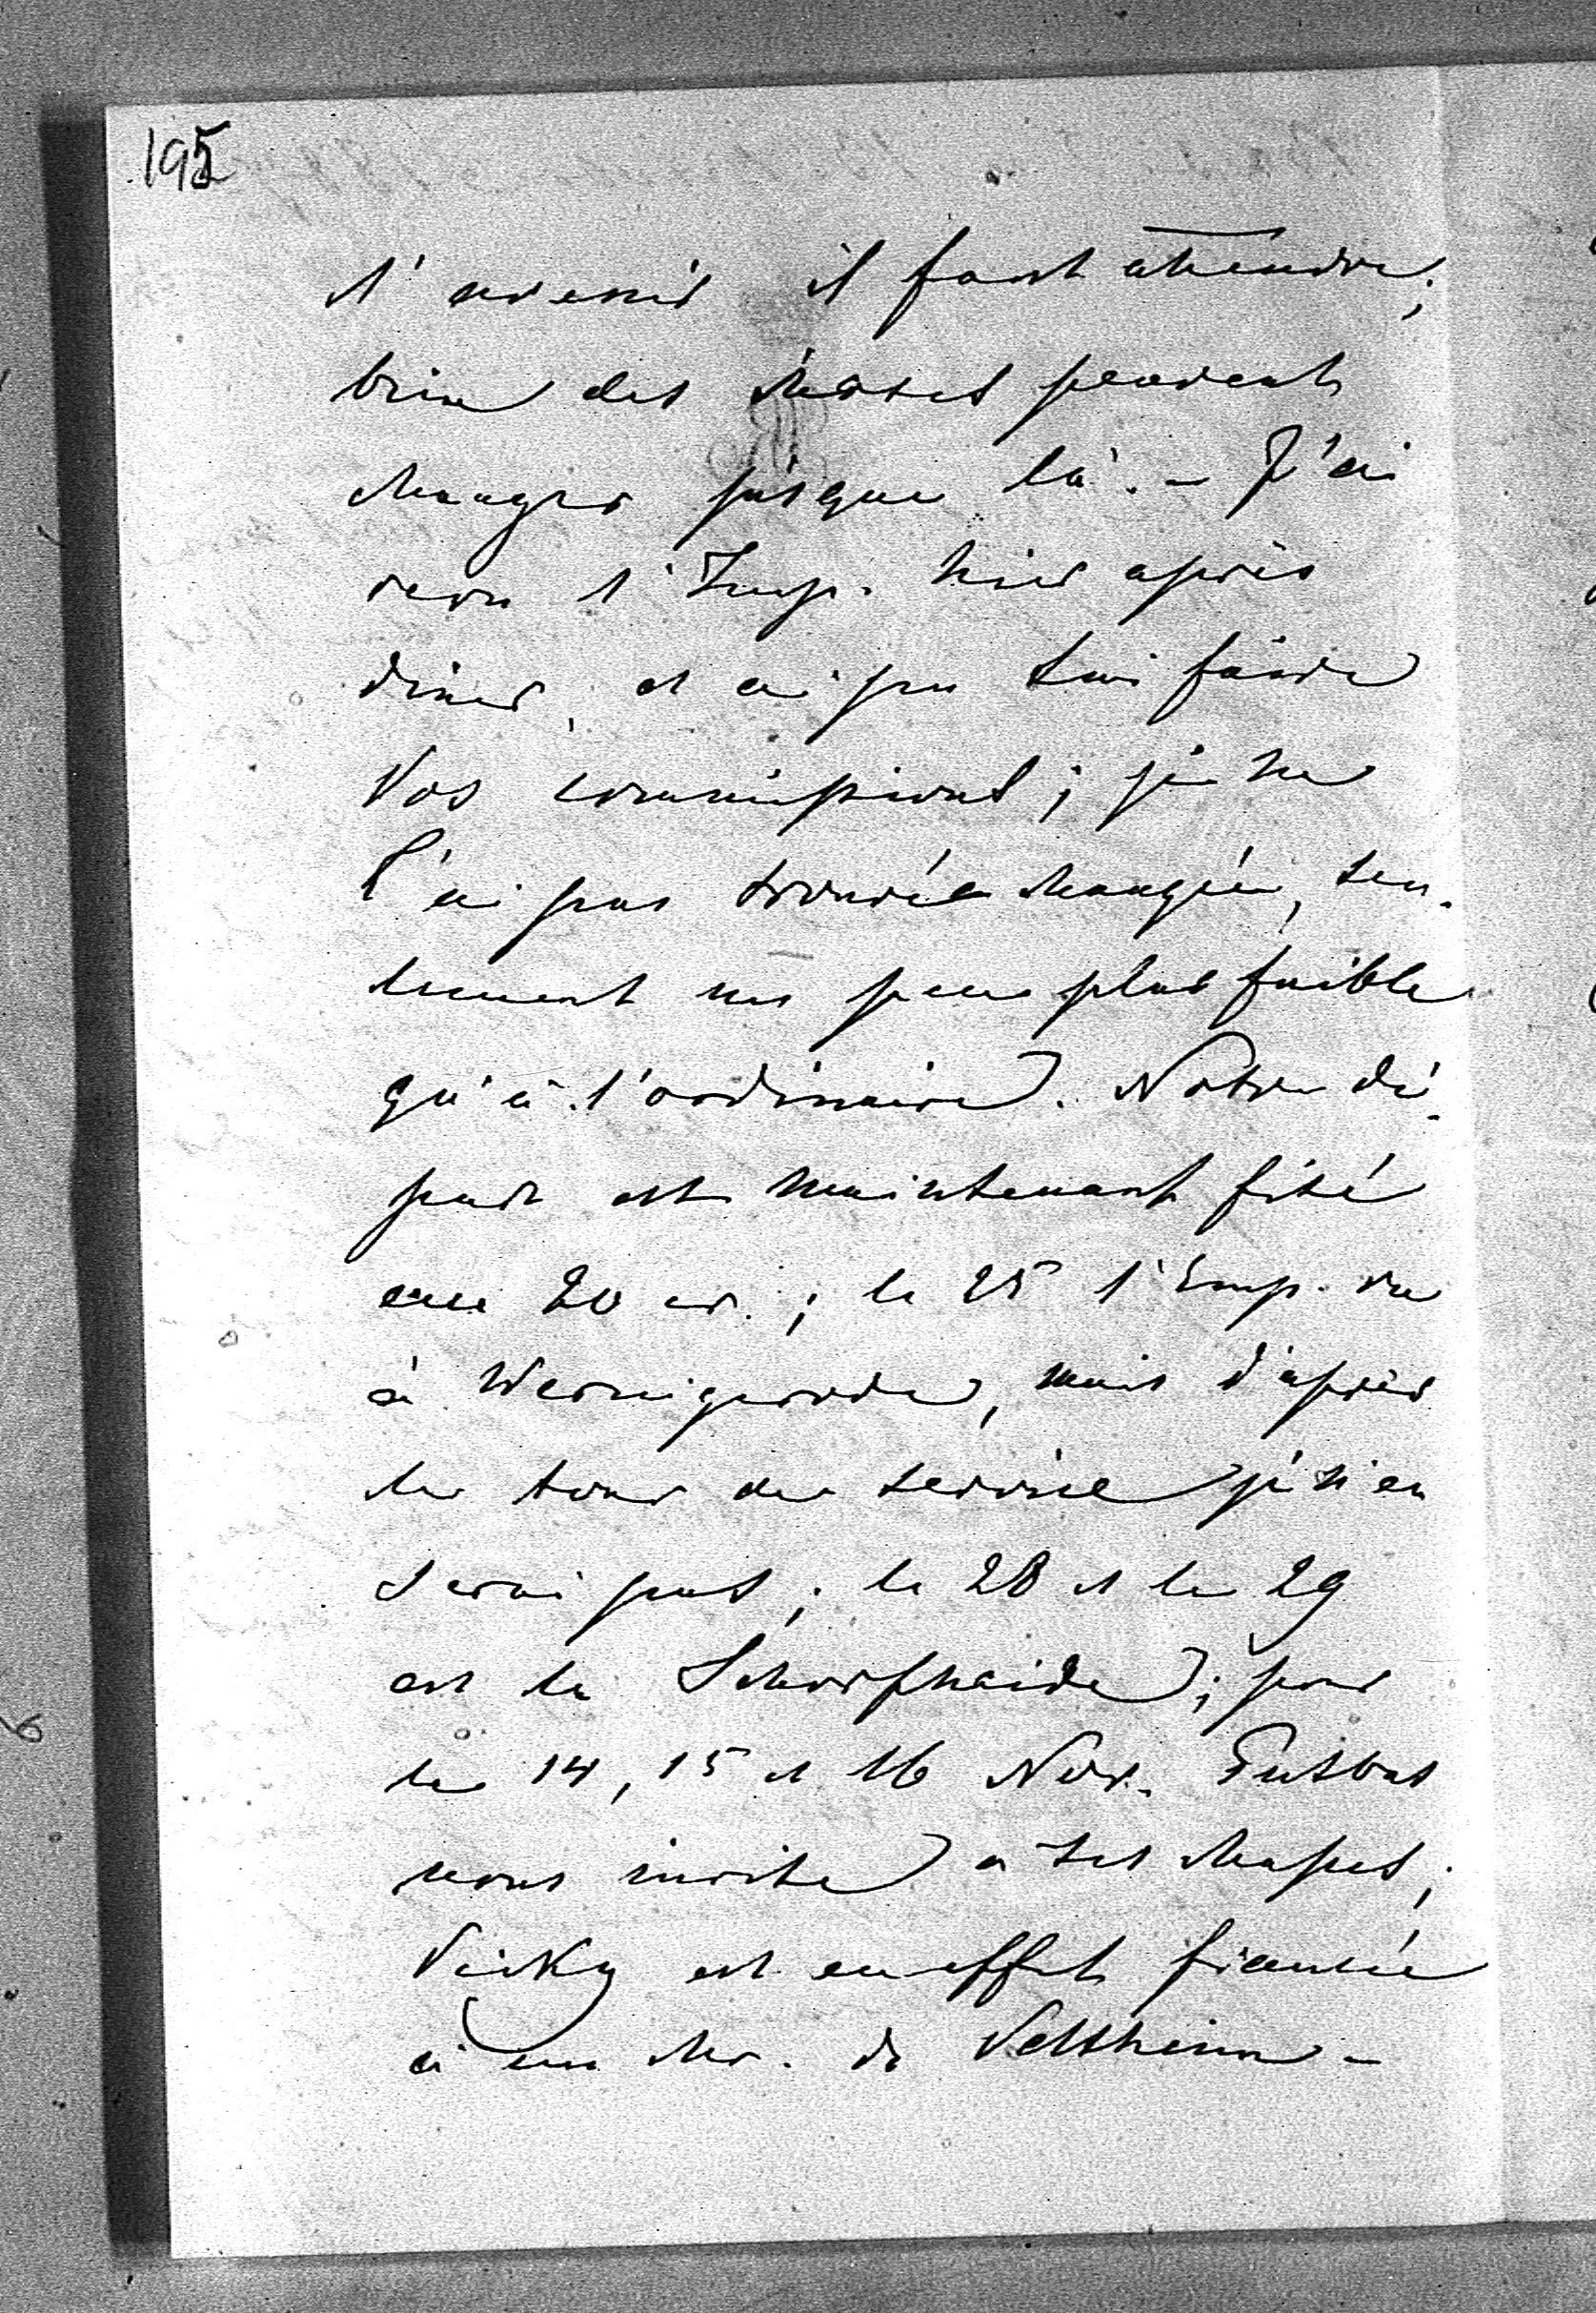 195
l'avenir il faut attendre;
bien des choses peuvent
changer jusque là. - J'ai
revu l'Imp. hier après
diner, et ai pu lui faire
Vos commissions; je ne
l'ai pas trouvée changée, seu-
lement un peu plus faible
qu'à l'ordinaire. Notre dé-
part est maintenant fixé
au 20 cr.; le 25 l'Emp. va
à Wernigerode, mais d'après
le tour de service je n'en
serai pas; le 28 et le 29
est la Schorfhaide; pour
le 14, 15 et 16 Nov. Putbus
nous invite à ses chasses;
Vicky est en effet fiancée
à un Mr. de Veltheim -